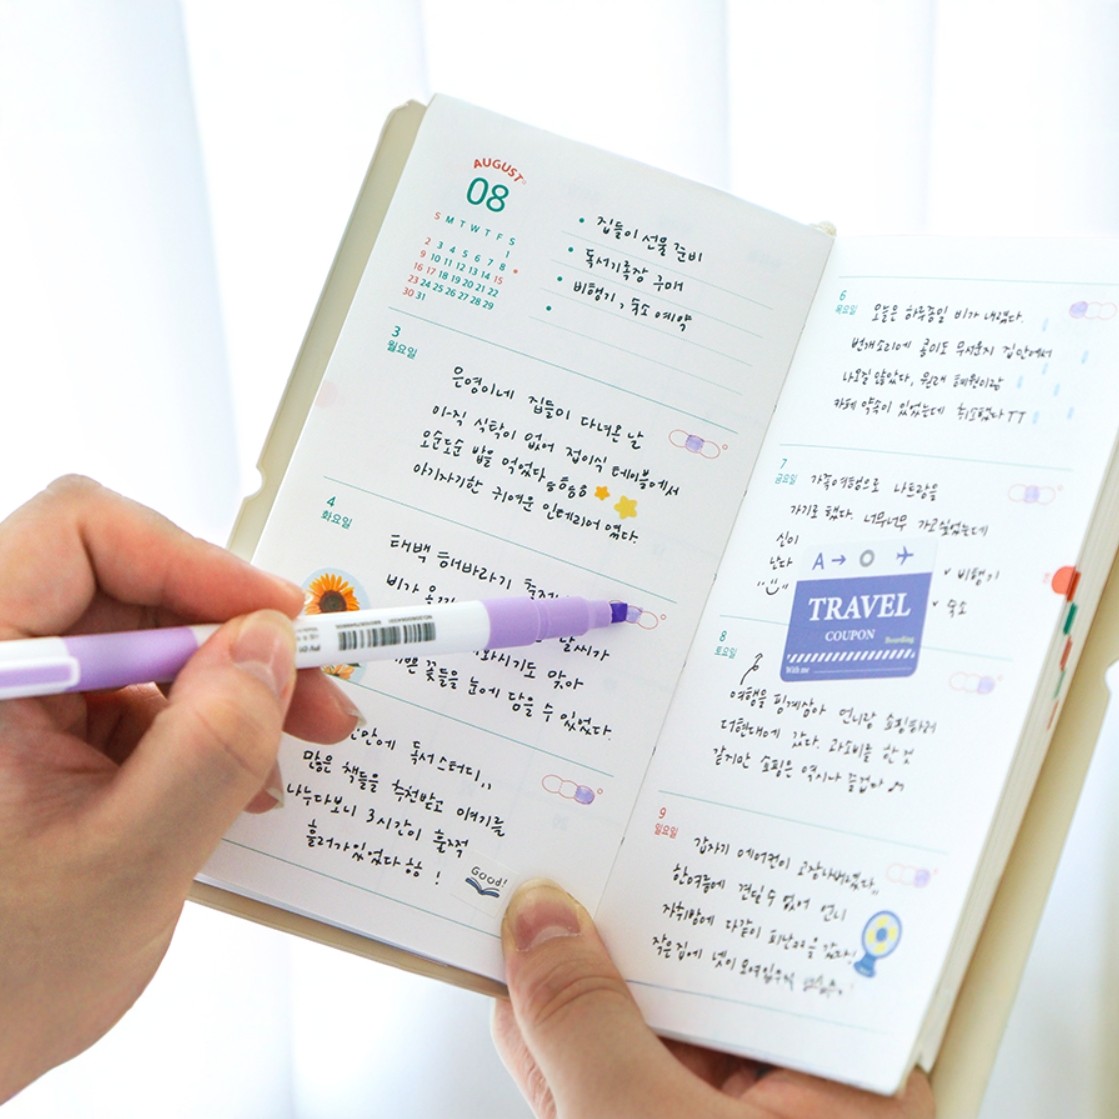 AUGUST
08
S M T W T F S
1
2 3 4 5 6 7 8
9 10 11 12 13 14 15
16 17 18 19 20 21 22
23 24 25 26 27 28 29
30 31
• 집들이 선물 준비
• 독서기록장 구매
• 비행기, 숙소 예약
•
3
월요일
은영이네 집들이 다녀온 날
아직 식탁이 없어 접이식 테이블에서
오순도순 밥을 먹었다
아기자기한 귀여운 인테리어 였다.
4
화요일
태백 해바라기
비가
날씨가
맞아
꽃들을 눈에 담을 수 있었다.
독서 스터디,,
많은 책들을 추천받고 이야기를
나누다보니 3시간이 훌쩍
흘러가있었다 !
Good!
6
목요일
오늘은 하루종일 비가 내렸다.
번개소리에 콩이도 무서운지 집안에서
나오질 않았다, 원래 혜원이랑
카페 약속이 있었는데 취소했다 ㅜㅜ
7
금요일
가족여행으로 나트랑을
가기로 했다. 너무너무 가고싶었는데
신이
난다
✓ 비행기
✓ 숙소
A → O
TRAVEL
COUPON
Boarding
With me
8
토요일
여행을 핑계삼아 언니랑 쇼핑하러
더현대에 갔다. 과소비를 한 것
같지만 쇼핑은 역시나 즐겁다 ♪
9
일요일
갑자기 에어컨이 고장나버렸다,,
한여름에 견딜 수 없어 언니
자취방에 다같이 피난을 갔다
작은집에 넷이 모여있으니